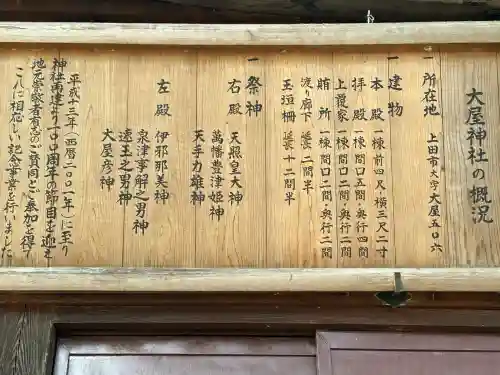 大屋神社の概況
一 所在地 上田市大字大屋五〇六
一 建物
本殿 一棟前四尺横三尺二寸
拝殿 一棟間口五間・奥行四間
上覆家 一棟間口二間・奥行二間
賄所 一棟間口二間・奥行二間
渡り廊下 延長二間半
玉垣柵 延長十二間半
一 祭神
右殿 天照皇大神
萬幡豊津姫神
天手力雄神
左殿 伊邪那美神
泉津事解之男神
速玉之男神
大屋彦神
平成十三年(西暦二〇〇一年)に至り
神社再建より一一〇周年の節目を迎え
地元崇敬者有志のご賛同とご参加を得て
これに相応しい記念事業を行いました